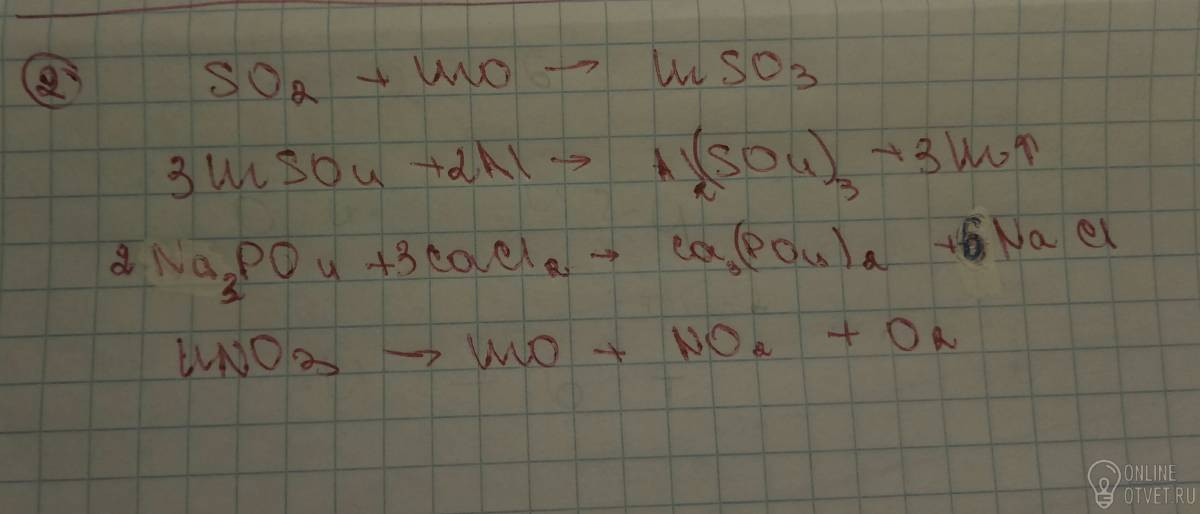 2) SO₂ + H₂O → H₂SO₃
3H₂SO₄ + 2Al → Al₂(SO₄)₃ + 3H₂↑
2Na₃PO₄ + 3CaCl₂ → Ca₃(PO₄)₂ + 6NaCl
HNO₃ → H₂O + NO₂ + O₂
ONLINE
OTVET.RU